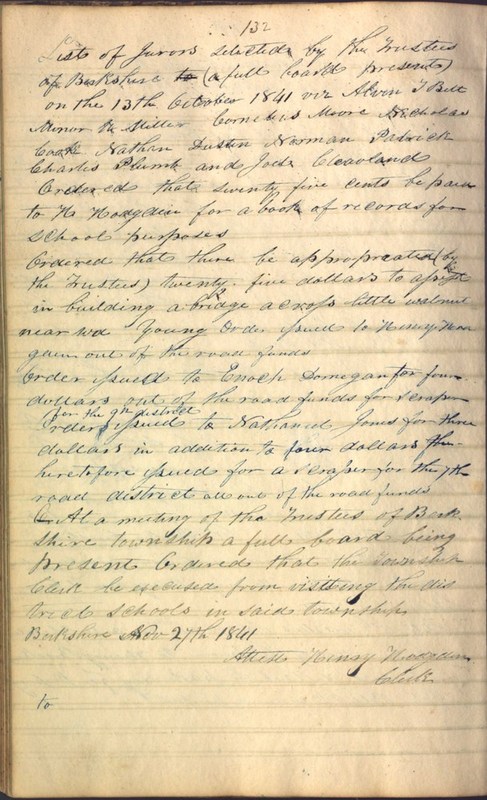 132
List of Jurors selected by the Trustees
of Berkshire to (a full board present)
on the 13th October 1841 viz Alvin T Bell
Minor R Miller Cornelius Moore Nicholas
Cook Nathan Dustin Norman Patrick
Charles Plumb and Joel Cleaveland
Ordered that twenty five cents be paid
to H Hodgden for a book of records for
school purposes
Ordered that there be appropreated (by
the Trustees) twenty five dollars to assist
in building a bridge across little walnut
near Wd Young Order issued to Henry
out of the road funds
Order issued to Enoch Domegan for four
dollars out of the road funds for scraper
for the 9th district
Order issued to Nathaniel Jones for three
dollars in addition to four dollars
heretofore issued for a scraper for the 7th
road district all out of the road funds
At a meeting of the Trustees of Berk
shire township a full board being
present Ordered that the Township
Clerk be excused from visiting the dis
trict schools in said township
Berkshire Nov 27th 1841
Attest Henry Hodgden
Clerk
to